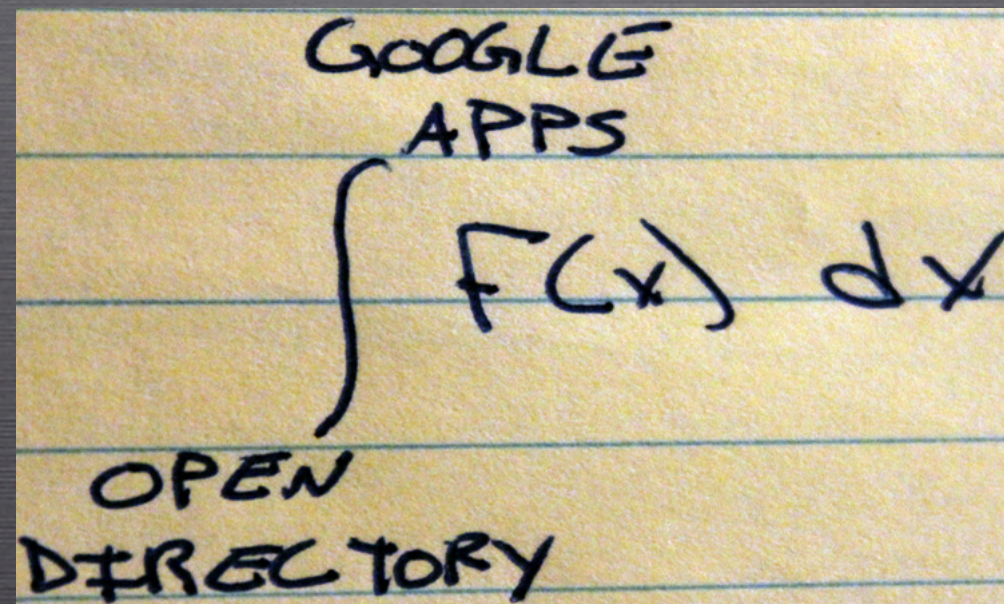 GOOGLE
APPS
∫ F(x) dx
OPEN
DIRECTORY